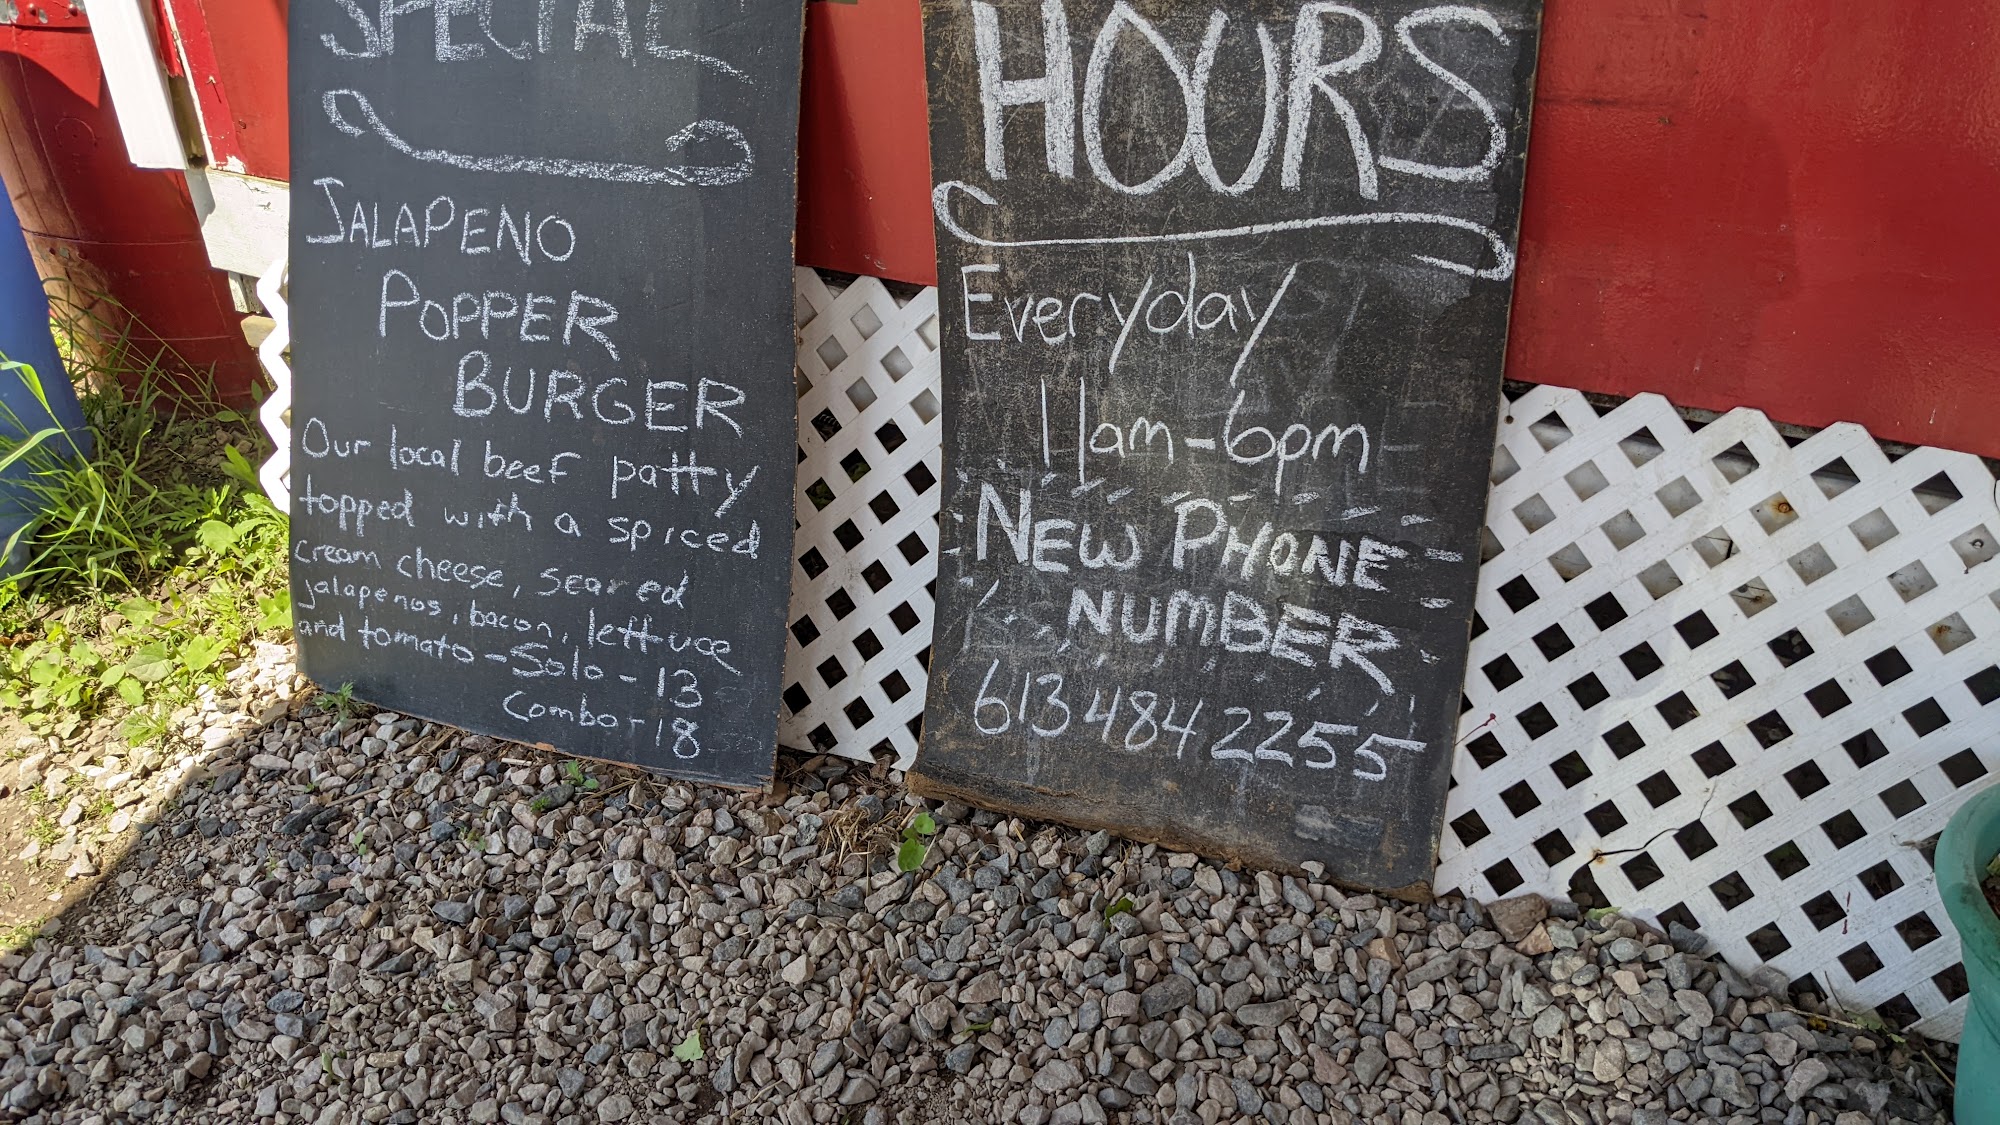 SPECIAL
JALAPENO
POPPER
BURGER
Our local beef patty
topped with a spiced
cream cheese, seared
jalapenos, bacon, lettuce
and tomato - Solo - 13
Combo - 18
HOURS
Everyday
11am - 6pm
NEW PHONE
NUMBER
613 484 2255